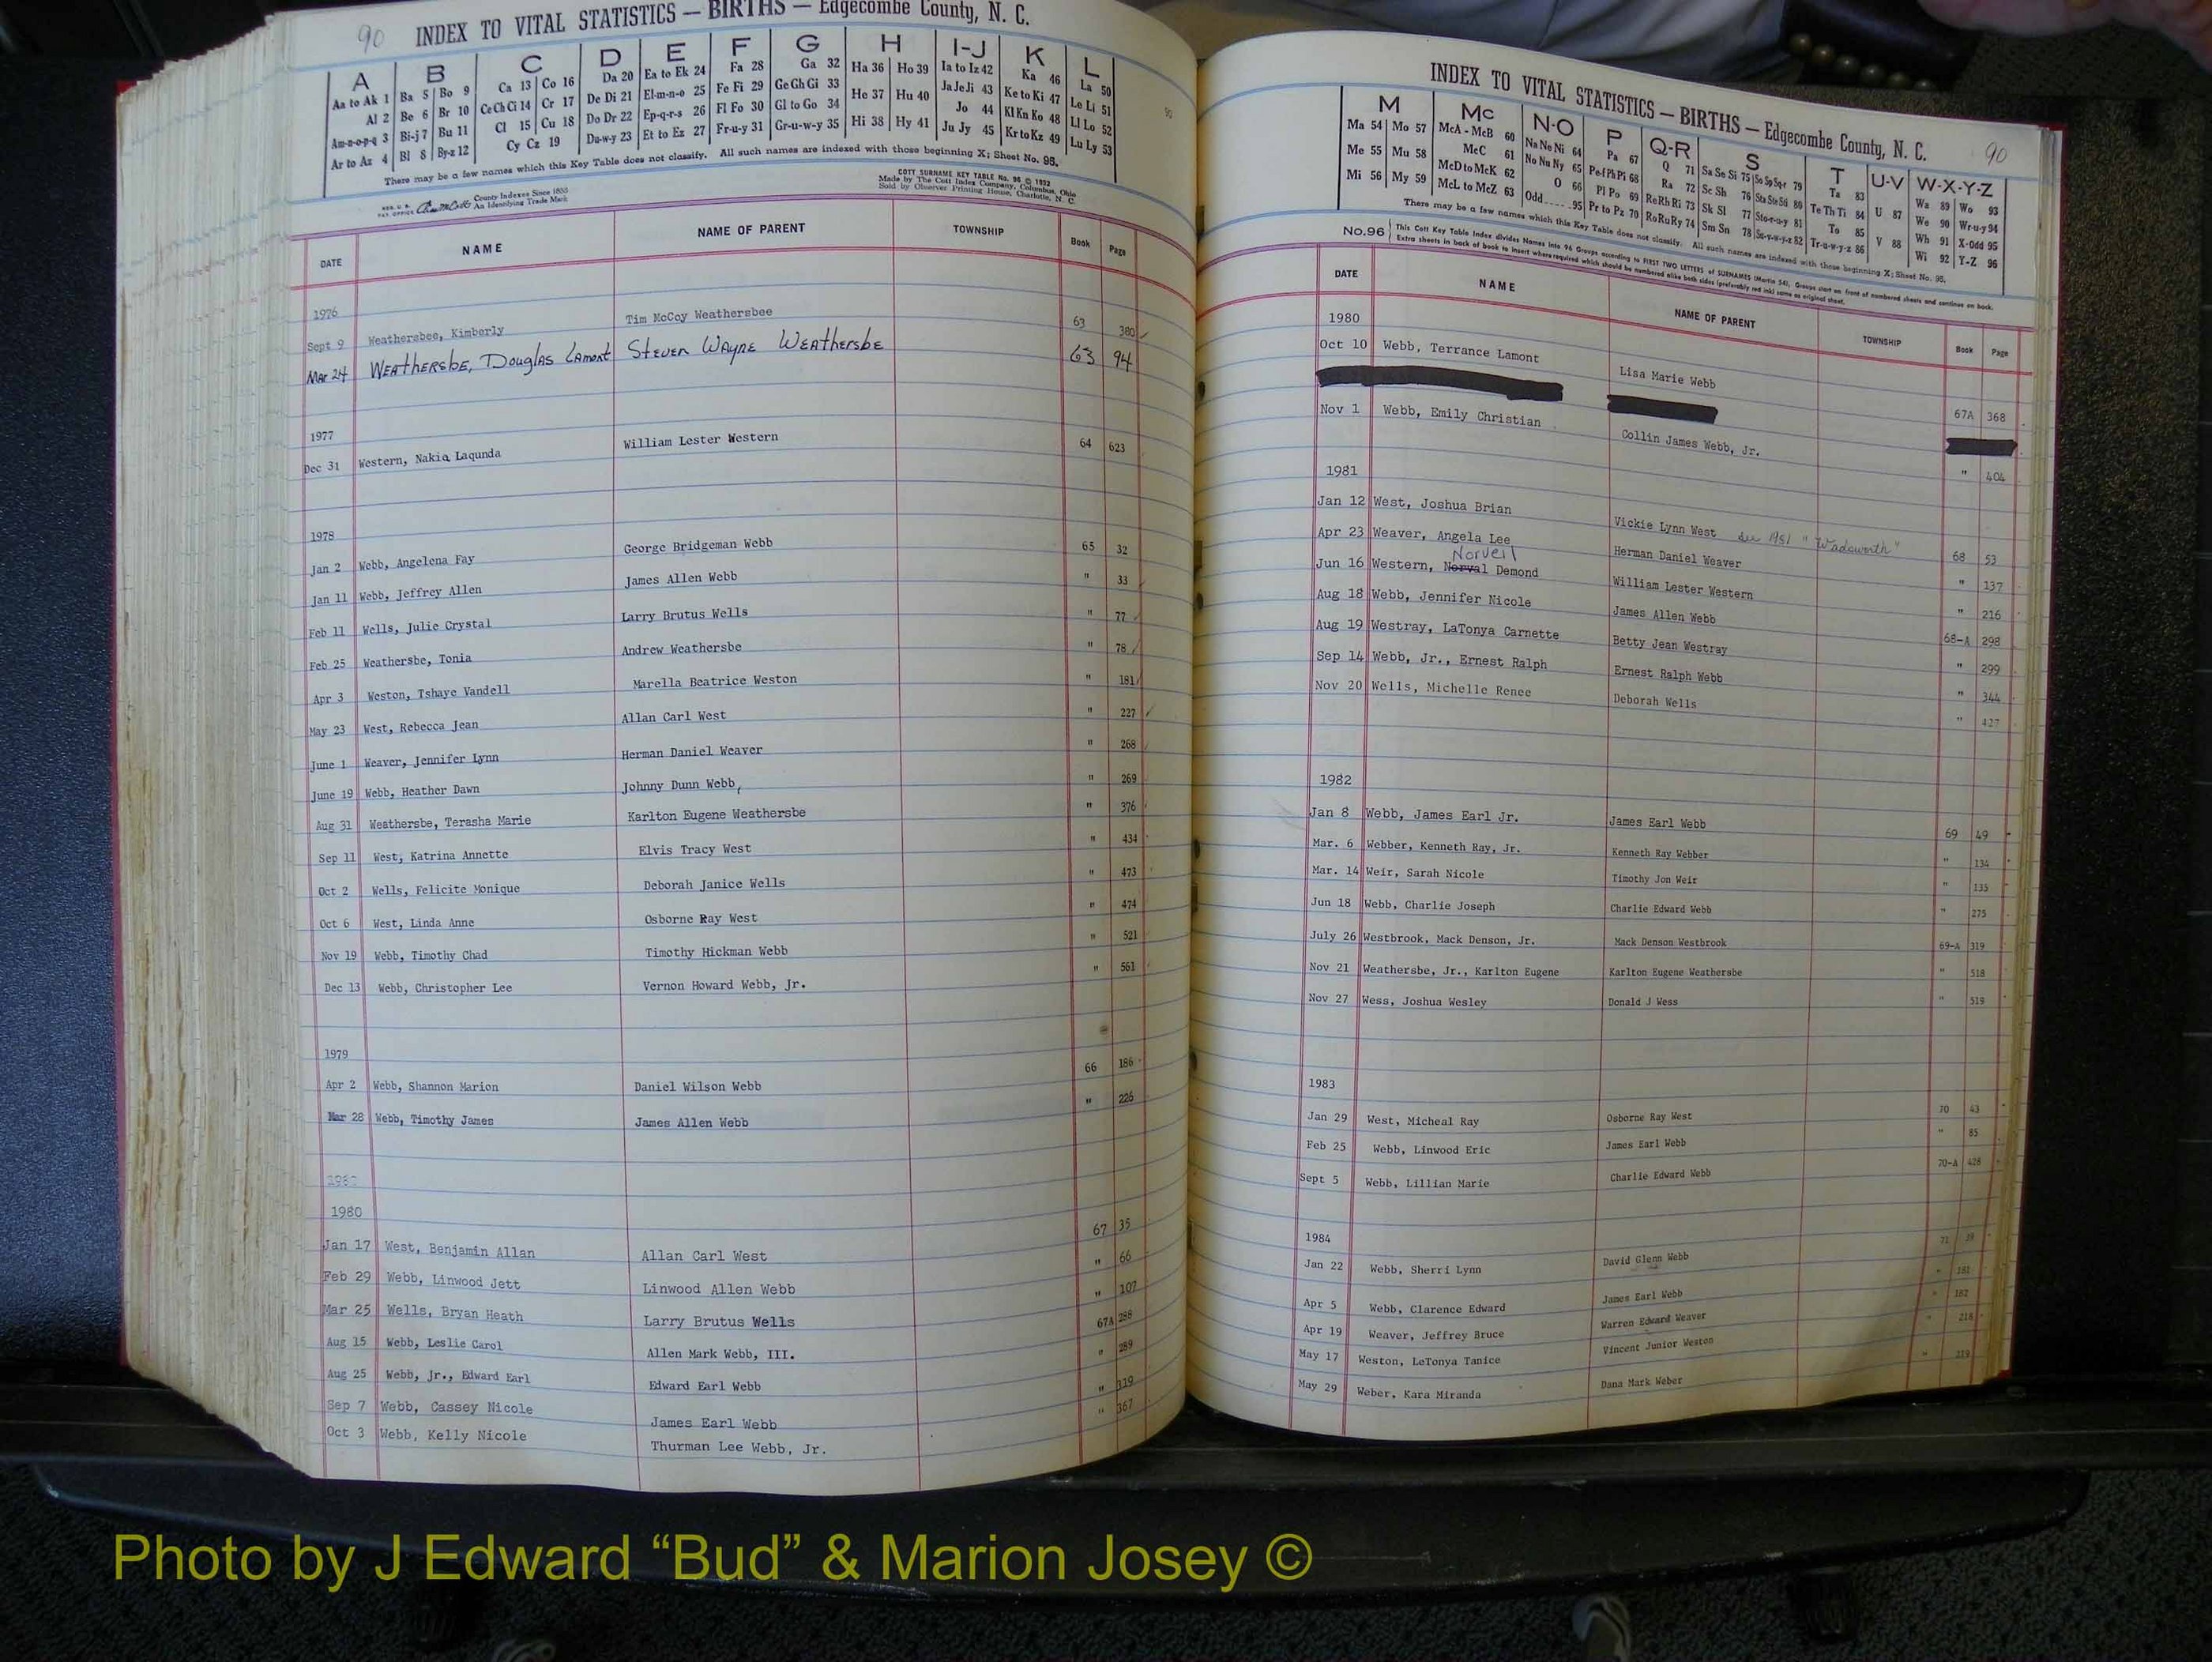 90 INDEX TO VITAL STATISTICS — BIRTHS — Edgecombe County, N. C.
A B C D E F G H I-J K L
Aa to Ak 1 Ba 5 Bo 9 Ca 13 Co 16 Da 20 Ea to Ek 24 Fa 28 Ga 32 Ha 36 Ho 39 Ia to Iz 42 Ka 46 La 50
Al 2 Be 6 Br 10 Ce Ch Ci 14 Cr 17 De Di 21 El-m-n-o 25 Fe Fi 29 Ge Gh Gi 33 He 37 Hu 40 Ja Je Ji 43 Ke to Ki 47 Le Li 51
Am-n-o-p-q 3 Bi-j 7 Bu 11 Cl 15 Cu 18 Do Dr 22 Ep-q-r-s 26 Fl Fo 30 Gl to Go 34 Hi 38 Hy 41 Jo 44 Kl Kn Ko 48 Ll Lo 52
Ar to Az 4 Bl 8 By-z 12 Cy Cz 19 Du-w-y 23 Et to Ez 27 Fr-u-y 31 Gr-u-w-y 35 Ju Jy 45 Kr to Kz 49 Lu Ly 53
There may be a few names which this Key Table does not classify. All such names are indexed with those beginning X; Sheet No. 95.
REG. U. S. PAT. OFFICE County Indexes Since 1888 An Identifying Trade Mark
COTT SURNAME KEY TABLE No. 96 © 1952
Made by The Cott Index Company, Columbus, Ohio
Sold by Observer Printing House, Charlotte, N. C.
DATE NAME NAME OF PARENT TOWNSHIP Book Page
1976
Sept 9 Weathersbee, Kimberly Tim McCoy Weathersbee 63 380
Mar 24 Weathersbe, Douglas Lamont Steven Wayne Weathersbe 63 94
1977
Dec 31 Western, Nakia Laqunda William Lester Western 64 623
1978
Jan 2 Webb, Angelena Fay George Bridgeman Webb 65 32
Jan 11 Webb, Jeffrey Allen James Allen Webb " 33
Feb 11 Wells, Julie Crystal Larry Brutus Wells " 77
Feb 25 Weathersbe, Tonia Andrew Weathersbe " 78
Apr 3 Weston, Tshaye Vandell Marella Beatrice Weston " 181
May 23 West, Rebecca Jean Allan Carl West " 227
June 1 Weaver, Jennifer Lynn Herman Daniel Weaver " 268
June 19 Webb, Heather Dawn Johnny Dunn Webb, " 269
Aug 31 Weathersbe, Terasha Marie Karlton Eugene Weathersbe " 376
Sep 11 West, Katrina Annette Elvis Tracy West " 434
Oct 2 Wells, Felicite Monique Deborah Janice Wells " 473
Oct 6 West, Linda Anne Osborne Ray West " 474
Nov 19 Webb, Timothy Chad Timothy Hickman Webb " 521
Dec 13 Webb, Christopher Lee Vernon Howard Webb, Jr. " 561
1979
Apr 2 Webb, Shannon Marion Daniel Wilson Webb 66 186
Mar 28 Webb, Timothy James James Allen Webb " 226
1980
Jan 17 West, Benjamin Allan Allan Carl West 67 35
Feb 29 Webb, Linwood Jett Linwood Allen Webb " 66
Mar 25 Wells, Bryan Heath Larry Brutus Wells " 107
Aug 15 Webb, Leslie Carol Allen Mark Webb, III. 67A 288
Aug 25 Webb, Jr., Edward Earl Edward Earl Webb " 289
Sep 7 Webb, Cassey Nicole James Earl Webb " 319
Oct 3 Webb, Kelly Nicole Thurman Lee Webb, Jr. " 367
INDEX TO VITAL STATISTICS — BIRTHS — Edgecombe County, N. C. 90
M Mc N-O P Q-R S T U-V W-X-Y-Z
Ma 54 Mo 57 McA - McB 60 Na Ne Ni 64 Pa 67 Q 71 Sa Se Si 75 So Sp Sq-r 79 Ta 83 U 87 Wa 89 Wo 93
Me 55 Mu 58 McC 61 No Nu Ny 65 Pe-f Ph Pi 68 Ra 72 Sc Sh 76 Sta Ste Sti 80 Te Th Ti 84 V 88 We 90 Wr-u-y 94
Mi 56 My 59 McD to McK 62 O 66 Pl Po 69 Re Rh Ri 73 Sk Sl 77 Sto-r-u-y 81 To 85 Wh 91 X-Odd 95
McL to McZ 63 Odd 95 Pr to Pz 70 Ro Ru Ry 74 Sm Sn 78 Su-v-w-y-z 82 Tr-u-w-y-z 86 Wi 92 Y-Z 96
There may be a few names which this Key Table does not classify. All such names are indexed with those beginning X; Sheet No. 95.
No. 96 This Cott Key Table Index divides Names into 96 Groups according to FIRST TWO LETTERS of SURNAMES (Martin 54). Groups start on front of numbered sheets and continue on back.
Extra sheets in back of book to insert where required which should be numbered alike both sides (preferably red ink) same as original sheet.
DATE NAME NAME OF PARENT TOWNSHIP Book Page
1980
Oct 10 Webb, Terrance Lamont Lisa Marie Webb 67A 368
Nov 1 Webb, Emily Christian Collin James Webb, Jr. " 404
1981
Jan 12 West, Joshua Brian Vickie Lynn West see 1981 "Wadsworth" 68 53
Apr 23 Weaver, Angela Lee Herman Daniel Weaver " 137
Norveil
Jun 16 Western, Norval Demond William Lester Western " 216
Aug 18 Webb, Jennifer Nicole James Allen Webb 68-A 298
Aug 19 Westray, LaTonya Carnette Betty Jean Westray " 299
Sep 14 Webb, Jr., Ernest Ralph Ernest Ralph Webb " 344
Nov 20 Wells, Michelle Renee Deborah Wells " 427
1982
Jan 8 Webb, James Earl Jr. James Earl Webb 69 49
Mar. 6 Webber, Kenneth Ray, Jr. Kenneth Ray Webber " 134
Mar. 14 Weir, Sarah Nicole Timothy Jon Weir " 135
Jun 18 Webb, Charlie Joseph Charlie Edward Webb " 275
July 26 Westbrook, Mack Denson, Jr. Mack Denson Westbrook 69-A 319
Nov 21 Weathersbe, Jr., Karlton Eugene Karlton Eugene Weathersbe " 518
Nov 27 Wess, Joshua Wesley Donald J Wess " 519
1983
Jan 29 West, Micheal Ray Osborne Ray West 70 43
Feb 25 Webb, Linwood Eric James Earl Webb " 85
Sept 5 Webb, Lillian Marie Charlie Edward Webb 70-A 428
1984
Jan 22 Webb, Sherri Lynn David Glenn Webb 71
Apr 5 Webb, Clarence Edward James Earl Webb " 161
Apr 19 Weaver, Jeffrey Bruce Warren Edward Weaver " 162
May 17 Weston, LeTonya Tanice Vincent Junior Weston " 218
May 29 Weber, Kara Miranda Dana Mark Weber " 219
Photo by J Edward “Bud” & Marion Josey ©